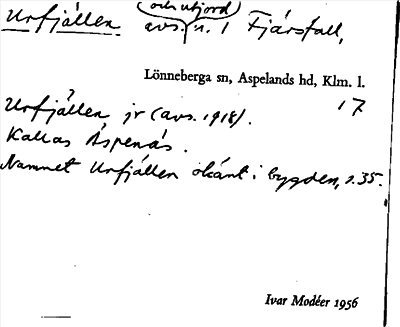 Urfjällen avs. (och utjord) n. 1 Fjärsfall,
Lönneberga sn, Aspelands hd, Klm. l.
17
Urfjällen jr (avs. 1918).
Kallas Äspenäs.
Namnet Urfjällen okänt i bygden, s. 35.
Ivar Modéer 1956